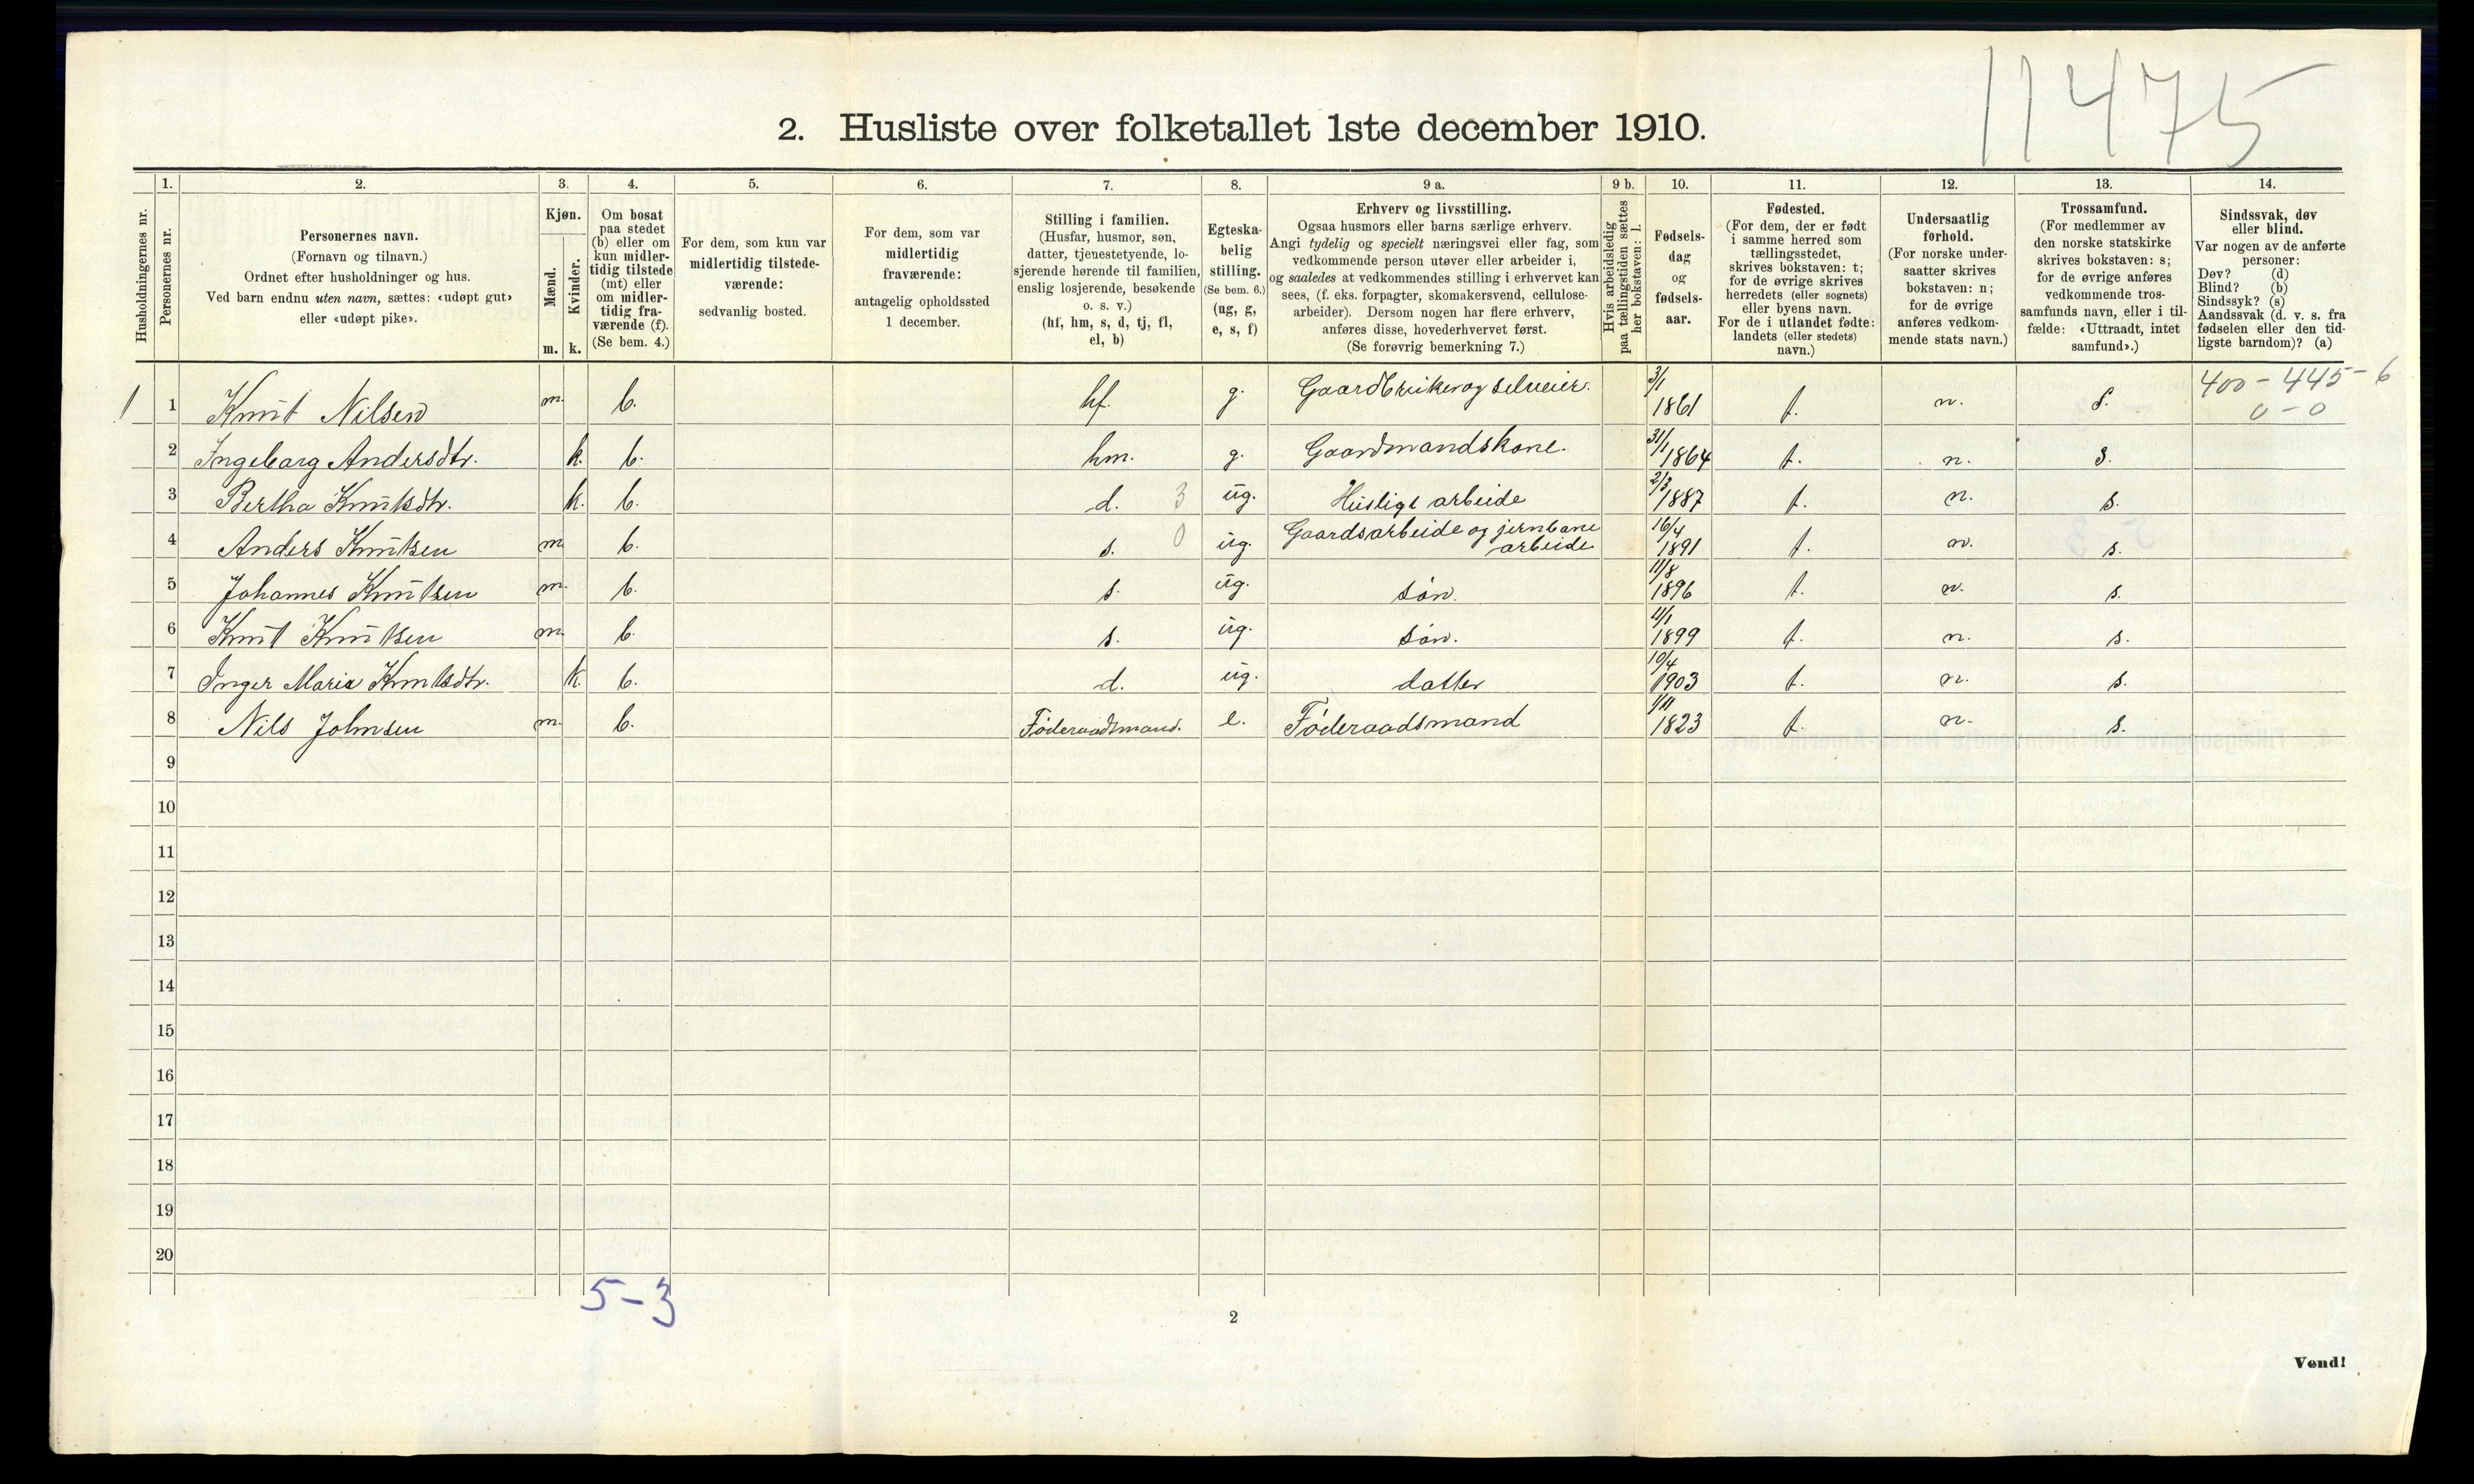 11475
2. Husliste over folketallet 1ste december 1910.
Husholdningernes nr.
1.
Personernes nr.
2.
Personernes navn.
(Fornavn og tilnavn.)
Ordnet efter husholdninger og hus.
Ved barn endnu uten navn, sættes: «udøpt gut»
eller «udøpt pike».
3.
Kjøn.
Mænd.
Kvinder.
m. k.
4.
Om bosat
paa stedet
(b) eller om
kun midler-
tidig tilstede
(mt) eller
om midler-
tidig fra-
værende (f).
(Se bem. 4.)
5.
For dem, som kun var
midlertidig tilstede-
værende:
sedvanlig bosted.
6.
For dem, som var
midlertidig
fraværende:
antagelig opholdssted
1 december.
7.
Stilling i familien.
(Husfar, husmor, søn,
datter, tjenestetyende, lo-
sjerende hørende til familien,
enslig losjerende, besøkende
o. s. v.)
(hf, hm, s, d, tj, fl,
el, b)
8.
Egteska-
belig
stilling.
(Se bem. 6.)
(ug, g,
e, s, f)
9 a.
Erhverv og livsstilling.
Ogsaa husmors eller barns særlige erhverv.
Angi tydelig og specielt næringsvei eller fag, som
vedkommende person utøver eller arbeider i,
og saaledes at vedkommendes stilling i erhvervet kan
sees, (f. eks. forpagter, skomakersvend, cellulose-
arbeider). Dersom nogen har flere erhverv,
anføres disse, hovederhvervet først.
(Se forøvrig bemerkning 7.)
9 b.
Hvis arbeidsledig
paa tællingstiden sættes
her bokstaven: l.
10.
Fødsels-
dag
og
fødsels-
aar.
11.
Fødested.
(For dem, der er født
i samme herred som
tællingsstedet,
skrives bokstaven: t;
for de øvrige skrives
herredets (eller sognets)
eller byens navn.
For de i utlandet fødte:
landets (eller stedets)
navn.)
12.
Undersaatlig
forhold.
(For norske under-
saatter skrives
bokstaven: n;
for de øvrige
anføres vedkom-
mende stats navn.)
13.
Trossamfund.
(For medlemmer av
den norske statskirke
skrives bokstaven: s;
for de øvrige anføres
vedkommende tros-
samfunds navn, eller i til-
fælde: «Uttraadt, intet
samfund».)
14.
Sindssvak, døv
eller blind.
Var nogen av de anførte
personer:
Døv? (d)
Blind? (b)
Sindssyk? (s)
Aandssvak (d. v. s. fra
fødselen eller den tid-
ligste barndom)? (a)
1 1 Knut Nilsen m. b. hf. g. Gaardbruker og selveier. 3/1 1861 t. n. s. 400-445-6
0-0
2 Ingeborg Andersdtr. k. b. hm. g. Gaardmandskone. 31/1 1864 t. n. s.
3 Bertha Knutsdtr. k. b. d. 3 ug. Husligt arbeide 2/3 1887 t. n. s.
4 Anders Knutsen m b. s. 0 ug. Gaardsarbeide og jernbane
arbeide 16/4 1891 t. n. s.
5 Johannes Knutsen m. b. s. ug. søn. 11/8 1896 t. n. s.
6 Knut Knutsen m. b. s. ug. søn. 4/1 1899 t. n. s.
7 Inger Marie Knutsdtr. k. b. d. ug. datter 10/4 1903 t. n. s.
8 Nils Johnsen m. b. Føderaadsmand. e. Føderaadsmand 1/11 1823 t. n. s.
9
10
11
12
13
14
15
16
17
18
19
20
5-3
2
Vend!